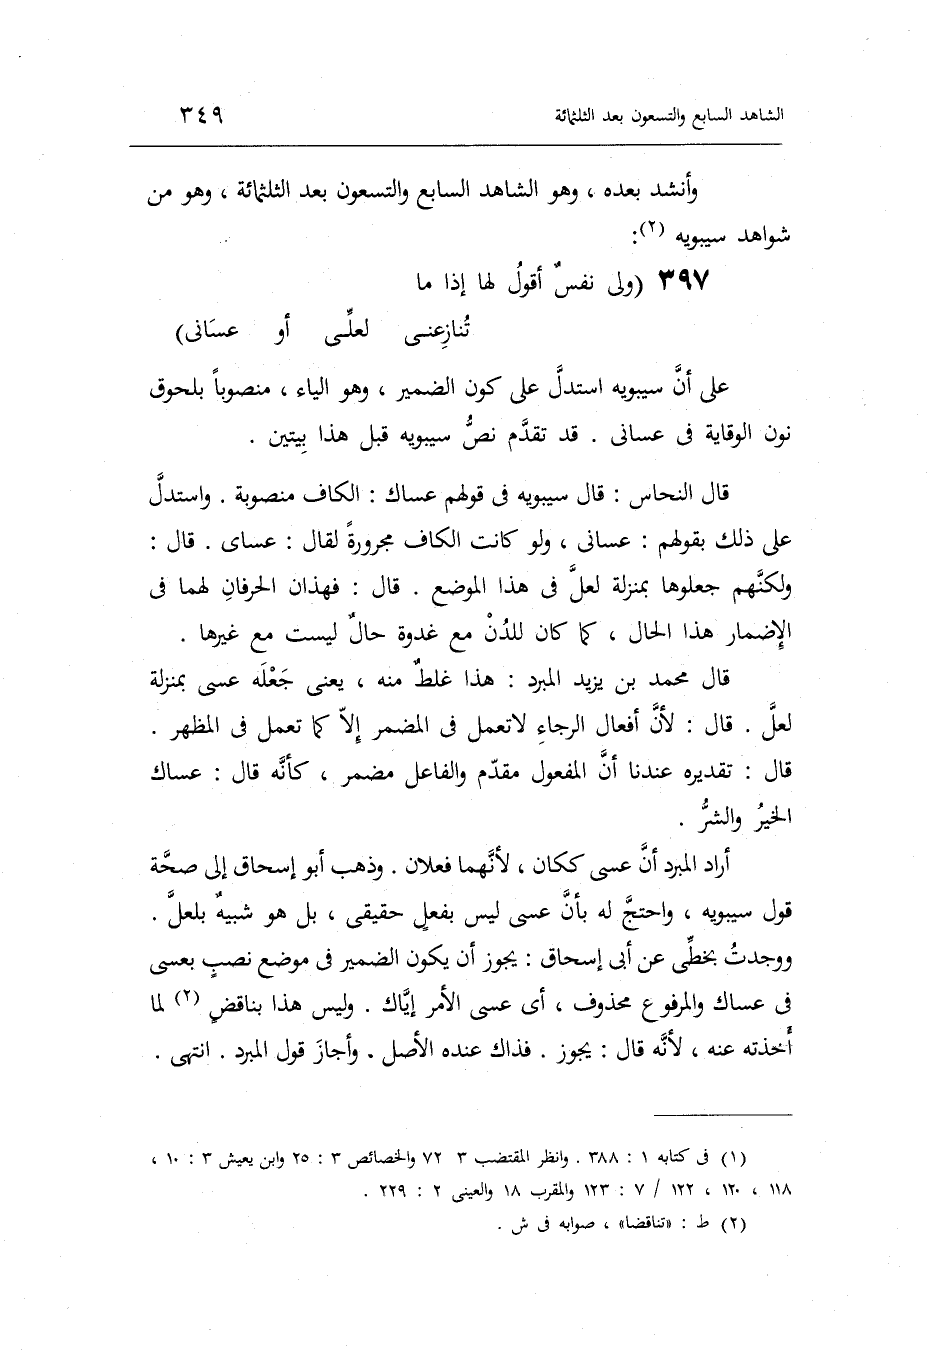 الشاهد السابع والتسعون بعد الثلثمائة ٣٤٩
وأنشد بعده ، وهو الشاهد السابع والتسعون بعد الثلثمائة ، وهو من
شواهد سيبويه (٢):
٣٩٧ (ولى نفسٌ أقولُ لها إذا ما
تُنازِعنى لعلِّى أو عسَانى)
على أنَّ سيبويه استدلَّ على كون الضمير ، وهو الياء ، منصوباً بلحوق
نون الوقاية فى عسانى . قد تقدَّم نصُّ سيبويه قبل هذا بِبيتين .
قال النحاس : قال سيبويه فى قولهم عساك : الكاف منصوبة . واستدلَّ
على ذلك بقولهم : عسانى ، ولو كانت الكاف مجرورةً لقال : عساى . قال :
ولكنَّهم جعلوها بمنزلة لعلَّ فى هذا الموضع . قال : فهذان الحرفانِ لهما فى
الإِضمار هذا الحال ، كما كان للدُنْ مع غدوة حالٌ ليست مع غيرها .
قال محمد بن يزيد المبرد : هذا غلطٌ منه ، يعنى جَعْلَه عسى بمنزلة
لعلَّ . قال : لأنَّ أفعال الرجاءِ لاتعمل فى المضمر إِلاّ كما تعمل فى المظهر .
قال : تقديره عندنا أنَّ المفعول مقدّم والفاعل مضمر ، كأنَّه قال : عساك
الخيرُ والشرُّ .
أراد المبرد أنَّ عسى ككان ، لأنَّهما فعلان . وذهب أبو إسحاق إلى صحَّة
قول سيبويه ، واحتجَّ له بأنَّ عسى ليس بفعلٍ حقيقى ، بل هو شبيهٌ بلعلَّ .
ووجدتُ بخطِّى عن أبى إسحاق : يجوز أن يكون الضمير فى موضع نصبٍ بعسى
فى عساك والمرفوع محذوف ، أى عسى الأمر إيَّاك . وليس هذا بناقضٍ (٢) لما
أخذته عنه ، لأنَّه قال : يجوز . فذاك عنده الأصل . وأجازَ قول المبرد . انتهى .
(١) فى كتابه ١ : ٣٨٨ . وانظر المقتضب ٣ ٧٢ والخصائص ٣ : ٢٥ وابن يعيش ٣ : ١٠ ،
١١٨ ، ١٢٠ ، ١٢٢ / ٧ : ١٢٣ والمقرب ١٨ والعينى ٢ : ٢٢٩ .
(٢) ط : «تناقضا» ، صوابه فى ش .